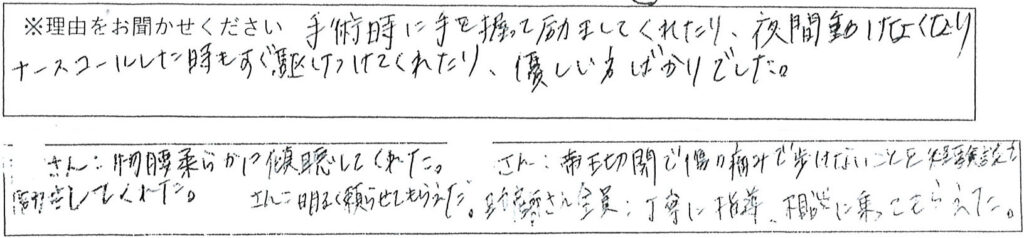 ※理由をお聞かせください 手術時に手を握って励ましてくれたり、夜間動けなくなり
ナースコールした時もすぐ駆けつけてくれたり、優しい方ばかりでした。
さん:物腰柔らかに傾聴してくれた。 さん:帝王切開で傷の痛みで歩けないことを経験談を
してくれた。 さん:明るく頼らせてもらえた。助産師さん全員:丁寧に指導、相談に乗ってもらえた。